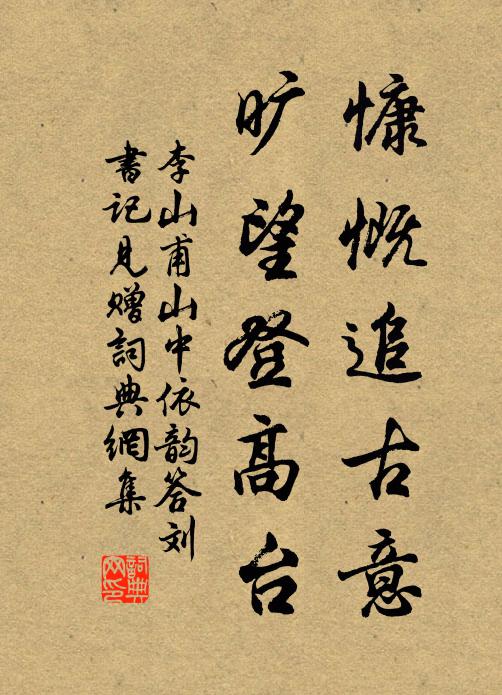 慷慨追古意
旷望登高台
李山甫山中依韵答刘
書记見赠詞典網集
詞典网印